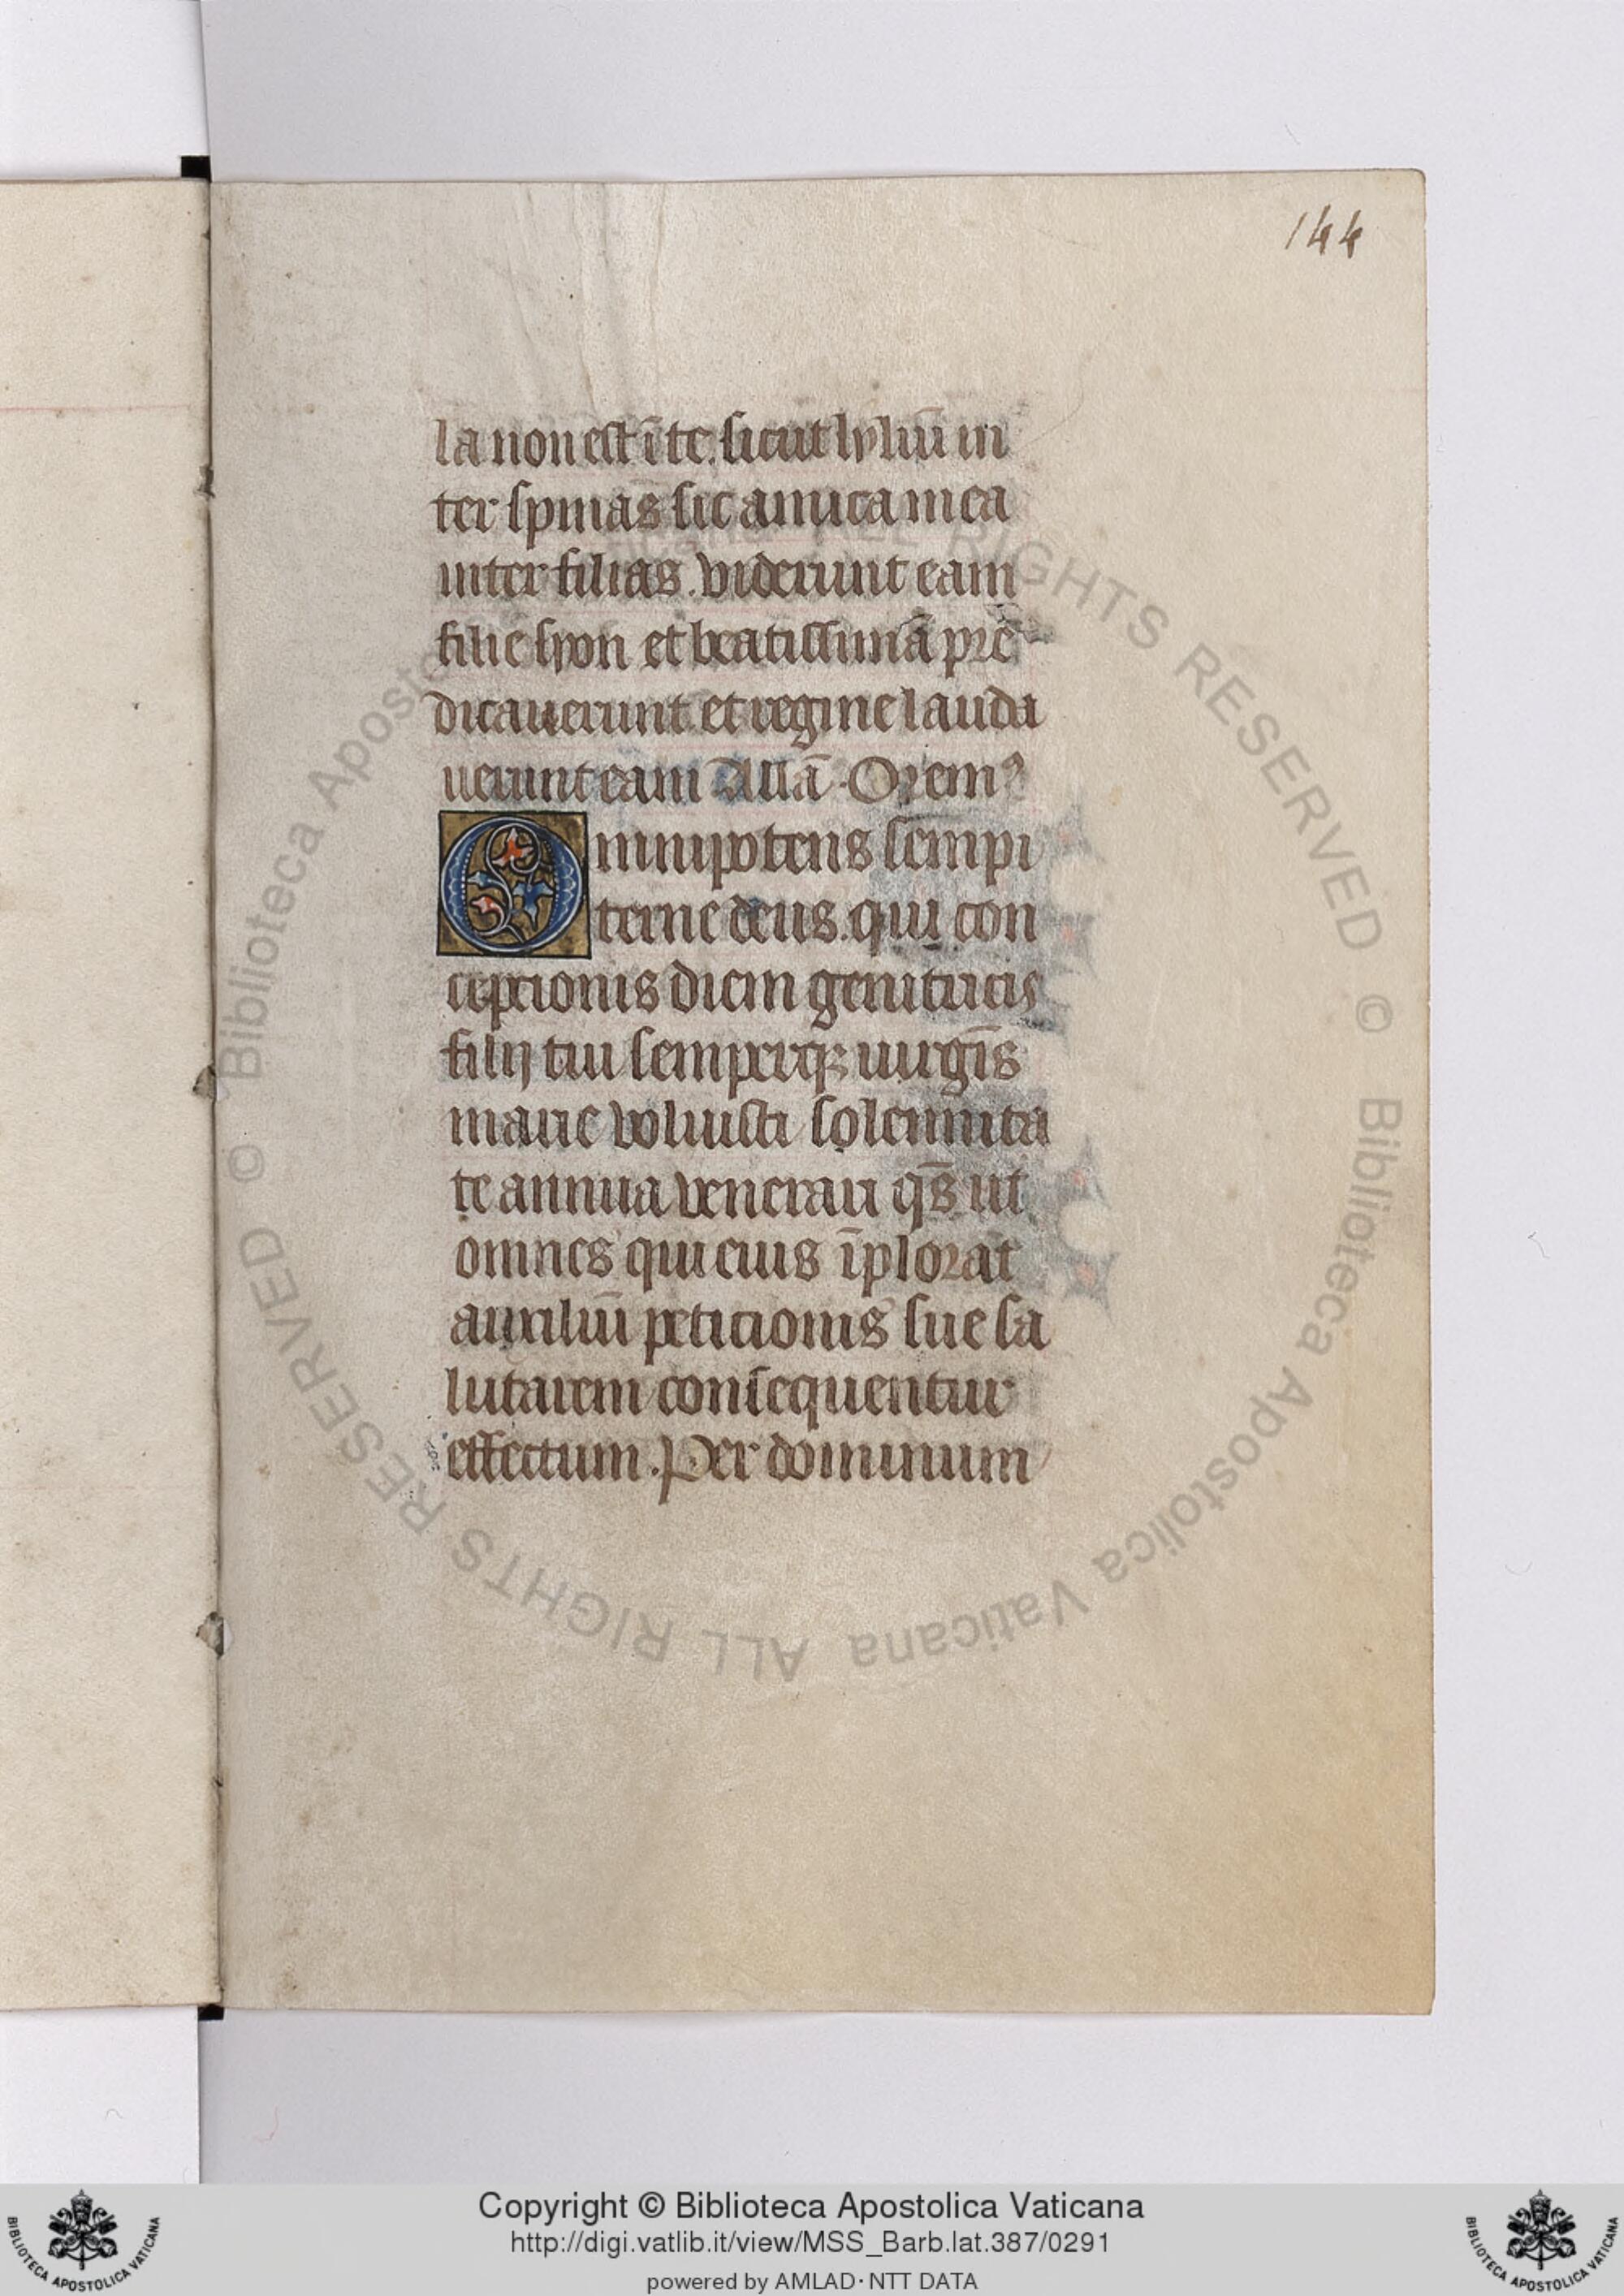 144
la non est ī te. sicut lyliū in
ter spinas sic amica mea
inter filias. viderunt eam
filie syon et beatissimā pre
dicauerunt et regine lauda
uerunt eam Allā. Orem⁹
Omnipotens sempi
terne deus. qui con
ceptionis diem genitricis
filij tui semperqꝫ uirgīs
marie voluisti solennita
te annua venerari qs̄ ut
omnes qui eius īplorāt
auxiliū peticionis sue sa
lutarem consequentur
effectum. Per dominum
© Biblioteca Apostolica Vaticana ALL RIGHTS RESERVED
© Biblioteca Apostolica Vaticana ALL RIGHTS RESERVED
Copyright © Biblioteca Apostolica Vaticana
http://digi.vatlib.it/view/MSS_Barb.lat.387/0291
powered by AMLAD·NTT DATA
BIBLIOTECA APOSTOLICA VATICANA
BIBLIOTECA APOSTOLICA VATICANA